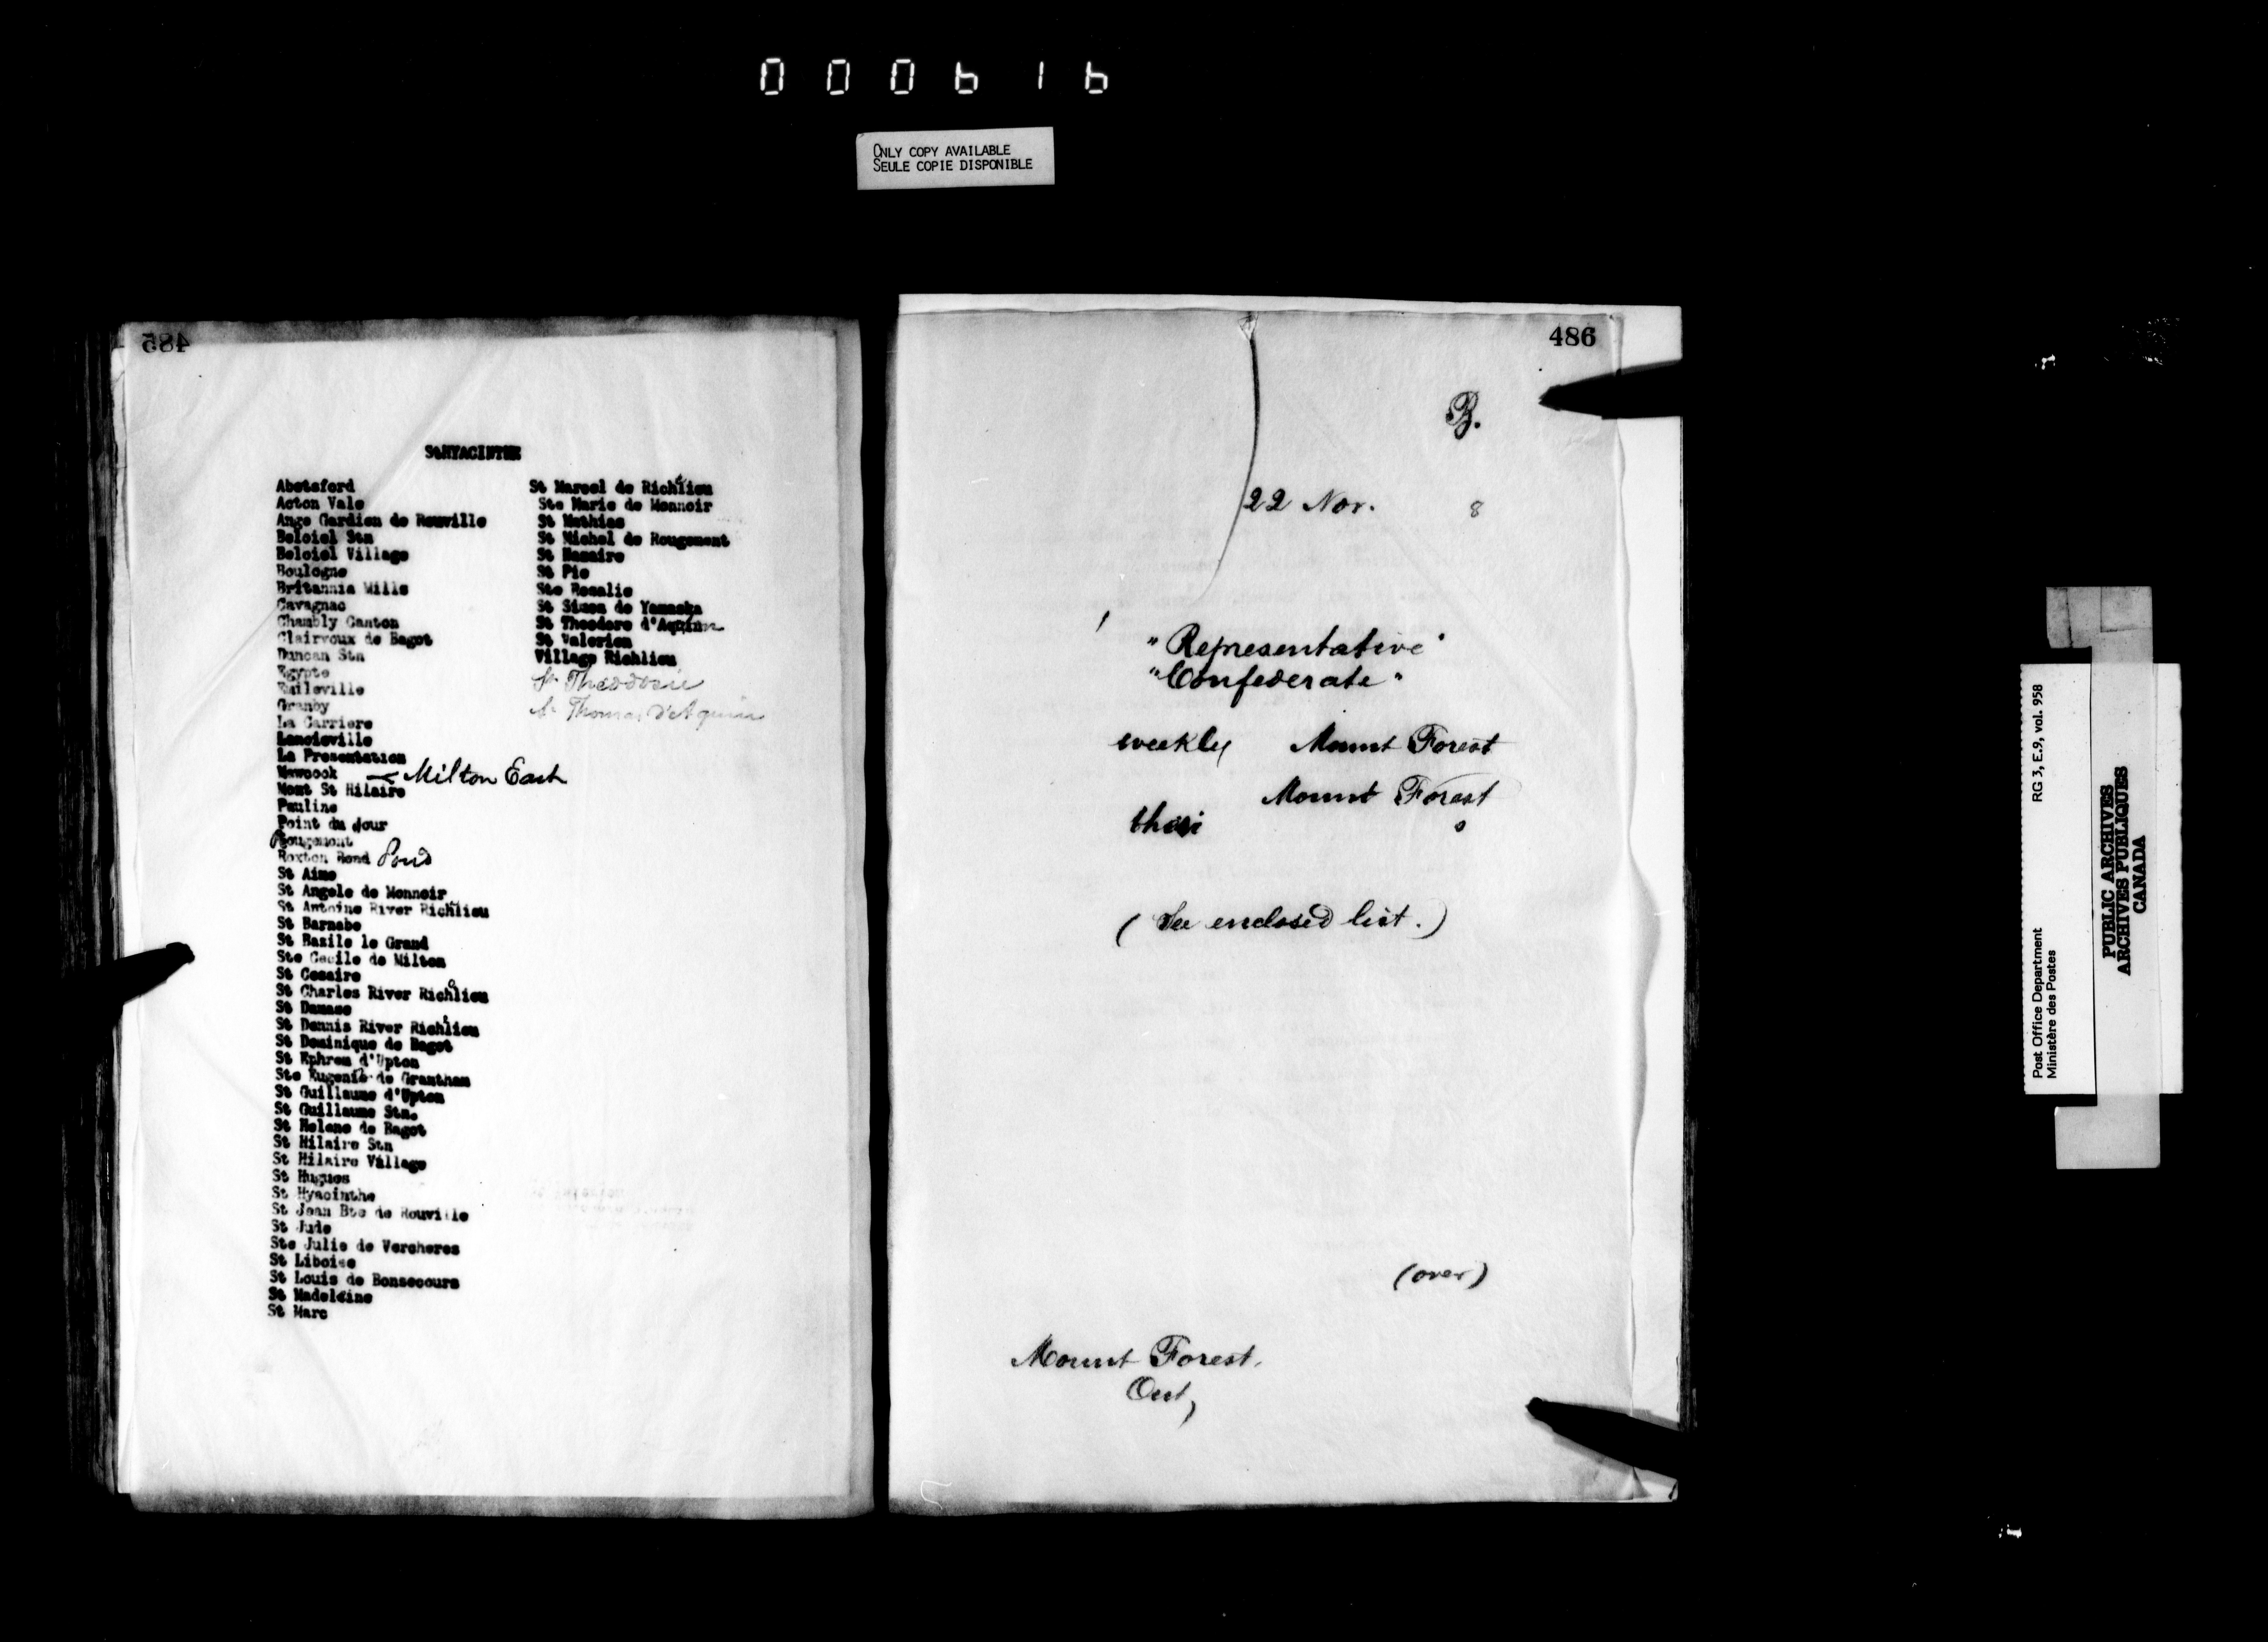 000616
ONLY COPY AVAILABLE
SEULE COPIE DISPONIBLE
485
StHYACINTHE
Abotsford
Acton Vale
Ange Gardien de Rouville
Beloiel Stn
Beloiel Village
Boulogne
Britannia Mills
Cavagnac
Chambly Canton
Clairvoux de Bagot
Duncan Stn
Egypte
Emileville
Granby
La Carriere
Lancieville
La Presentation
Mawcook — Milton East
Mont St Hilaire
Pauline
Point du Jour
Rougemont
Roxton Pond
St Aime
St Angele de Monnoir
St Antoine River Richlieu
St Barnabe
St Bazile le Grand
Ste Cecile de Milton
St Cesaire
St Charles River Richlieu
St Damase
St Dennis River Richlieu
St Dominique de Bagot
St Ephrem d'Upton
Ste Eugenie de Grantham
St Guillaume d'Upton
St Guillaume Stn.
St Helene de Bagot
St Hilaire Stn
St Hilaire Village
St Hugues
St Hyacinthe
St Jean Bte de Rouville
St Jude
Ste Julie de Vercheres
St Liboire
St Louis de Bonsecours
St Madeleine
St Marc
St Marcel de Richlieu
Ste Marie de Monnoir
St Mathias
St Michel de Rougemont
St Nazaire
St Pie
Ste Rosalie
St Simon de Yamaska
St Theodore d'Aquin
St Valerien
Village Richlieu
St Theodosie
St Thomas d'Aquin
486
B.
22 Nov. 8
"Representative"
"Confederate"
weekly Mount Forest
Mount Forest
their
(See enclosed list.)
(over)
Mount Forest.
Ont,
Post Office Department
Ministère des Postes
RG 3, E.9, vol. 958
PUBLIC ARCHIVES
ARCHIVES PUBLIQUES
CANADA